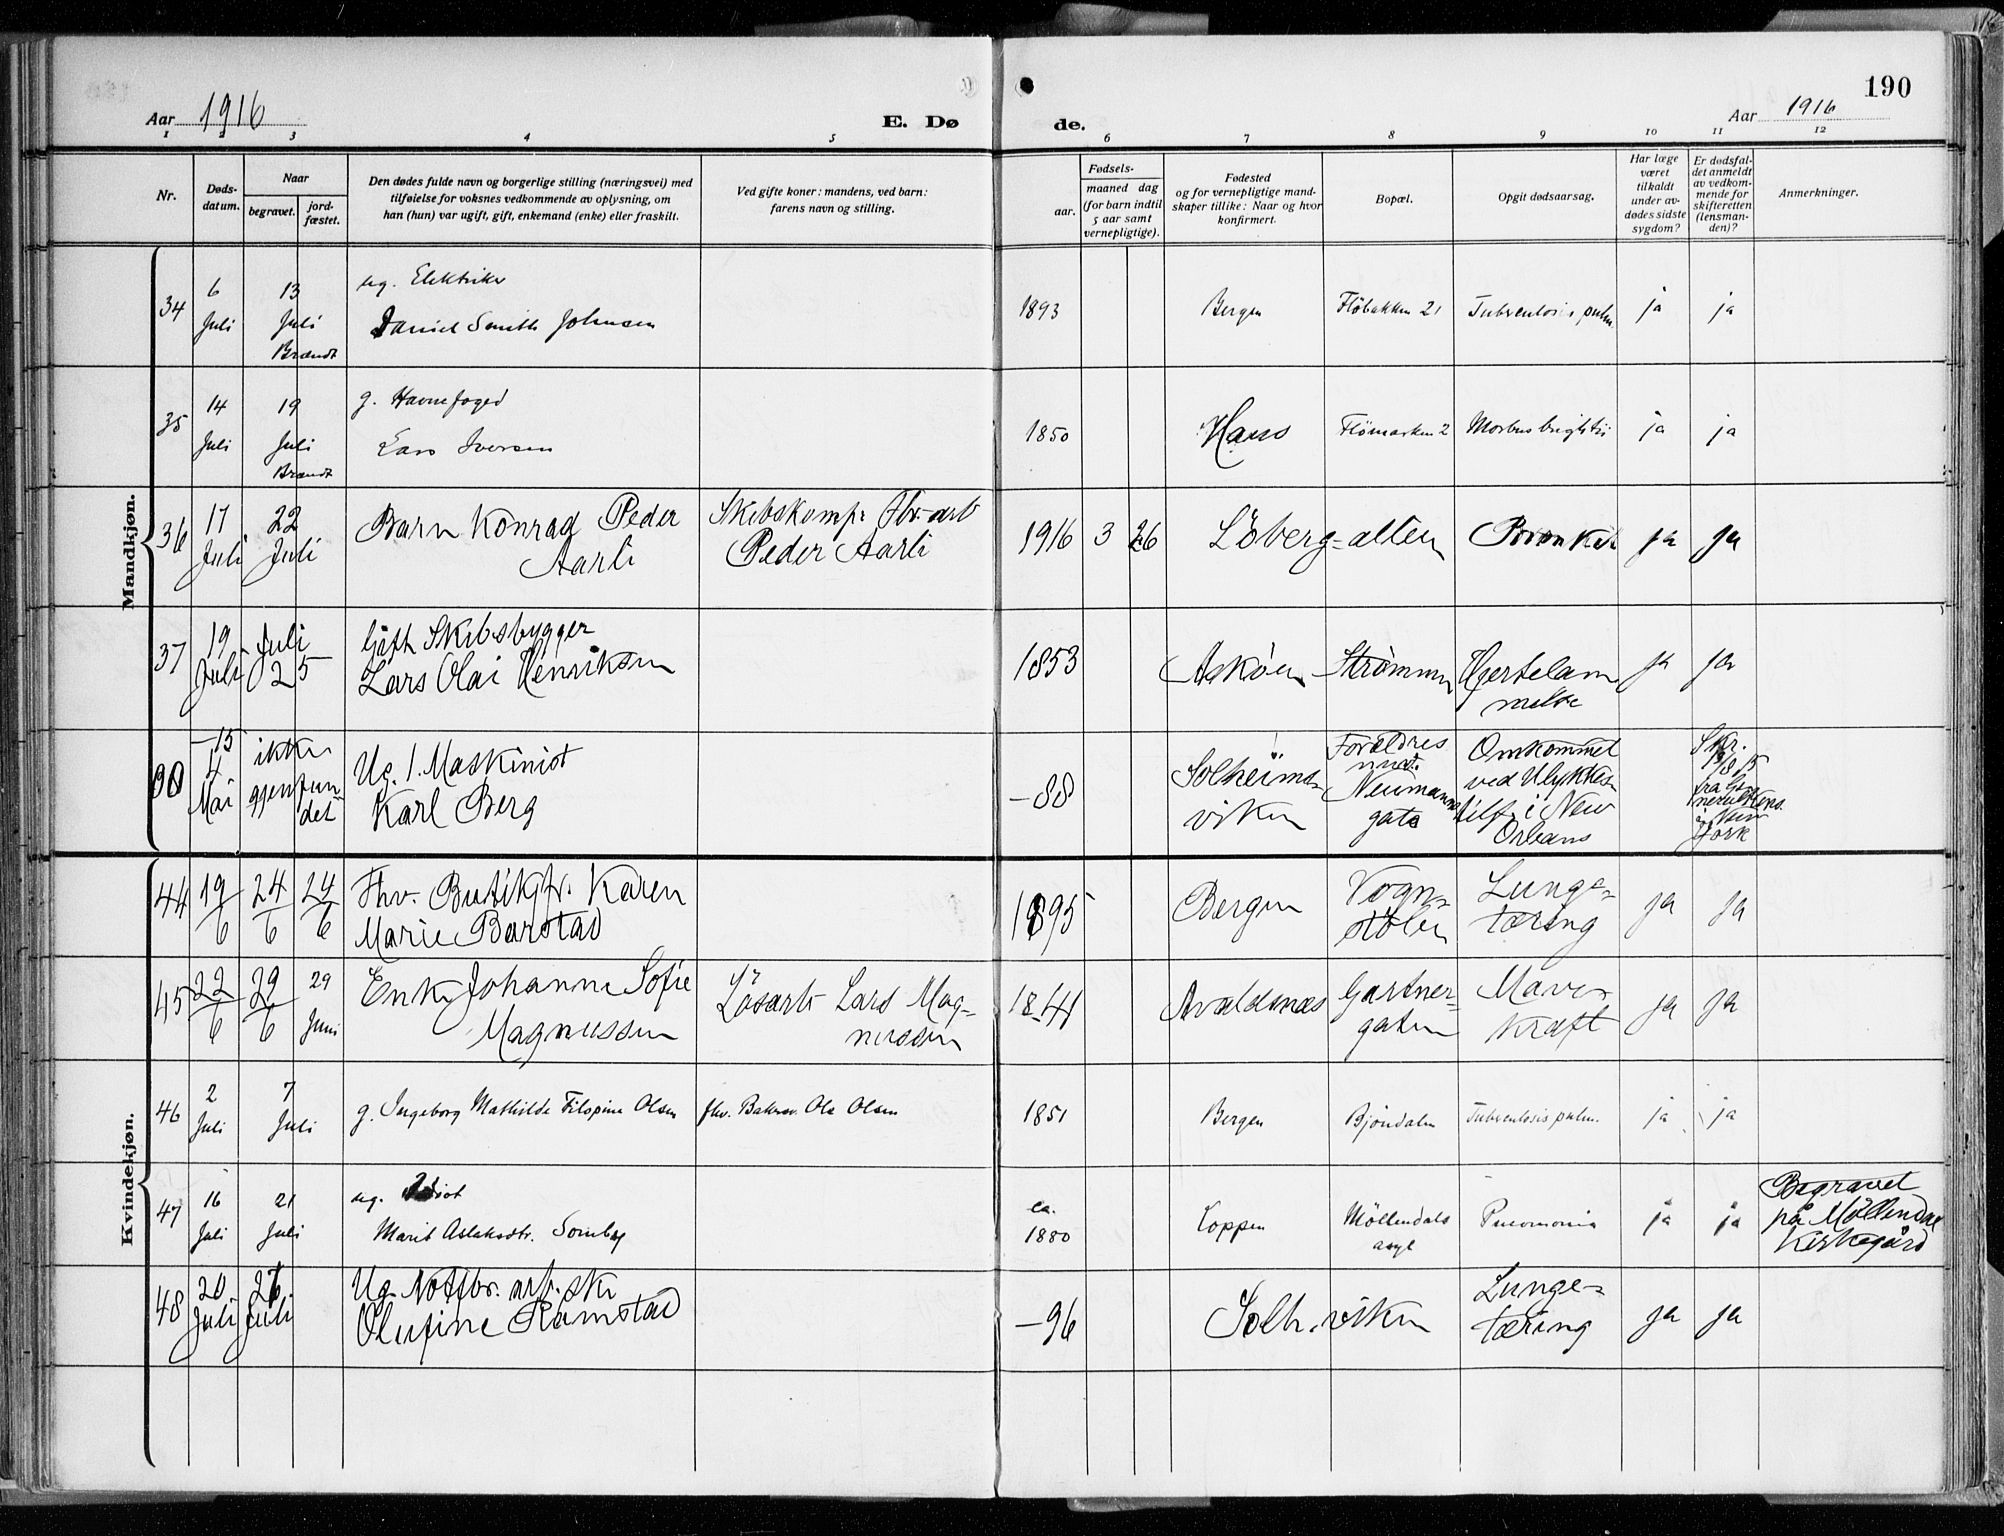 190
Aar 1916
E. Dø
de.
Aar 1916
1 2 3 4 5 6 7 8 9 10 11 12
Nr.
Døds-
datum.
Naar
begravet.
jord-
fæstet.
Den dødes fulde navn og borgerlige stilling (næringsvei) med
tilføielse for voksnes vedkommende av oplysning, om
han (hun) var ugift, gift, enkemand (enke) eller fraskilt.
Ved gifte koner: mandens, ved barn:
farens navn og stilling.
Fødsels-
aar.
maaned dag
(for barn indtil
5 aar samt
vernepligtige).
Fødested
og for vernepligtige mand-
skaper tillike: Naar og hvor
konfirmert.
Bopæl.
Opgit dødsaarsag.
Har læge
været
tilkaldt
under av-
dødes sidste
sygdom?
Er dødsfal-
det anmeldt
av vedkom-
mende for
skifteretten
(lensman-
den)?
Anmerkninger.
Mandkjøn.
34
6
Juli
13
Juli
Brandt
ug. Elektriker
Daniel Smith Johnsen
1893
Bergen
Fløbakken 21
Tuberculosis pulm.
ja
ja
35
14
Juli
19
Juli
Brandt
g. Havnefoged
Lars Iversen
1850
Haus
2
Morbus brightii
ja
ja
36
17
Juli
22
Juli
Barn Konrad Peder
Aarli
Skibstømr. Fbr.arb
Peder Aarli
1916 3 26
Löberg-alleen
Bronkit
ja
ja
37
19
Juli
Juli
25
Gift Skibsbygger
Lars Olai Henriksen
1853
Askøen
Strømmen
Hjertelam
melse
ja
ja
-15
11
Mai
ikke
gjenfun-
det
Ug. 1. Maskinist
Karl Berg
-88
Solheims-
viken
Forældres
Neumanns
gate
Omkommet
ved Ulykkes-
tilf. i New
Orleans
Skr.
fra Ge-
neralkons.
i New
York
Kvindekjøn.
44
19/6
24/6
24/6
Fhv. Butikfr. Karen
Marie Barstad
1895
Bergen
Vogn-
stölen
Lunge-
tæring
ja
ja
45
22/6
29/6
29
Juni
Enke Johanne Sofie
Magnussen
Løsarb Lars Mag-
nussen
1841
Avaldsnæs
Gartner-
gaten
Mave-
kræft
ja
ja
46
2
Juli
7
Juli
g. Ingeborg Mathilde Filopine Olsen
fhv. Bakersv. Ole Olsen
1851
Bergen
Bjöndalen
Tuberculosis pulm.
ja
ja
47
16
Juli
21
Juli
ug. Idiot
Marit Aslaksdtr. Somby
ca.
1880
Loppen
Møllendals
asyl
Pneumonia
ja
ja
Begravet
på Möllendal
Kirkegård
48
20
Juli
26
Juli
Ug. Notfbr. arb.ske
Olufine Ramstad
-96
Solh.viken
Lunge-
tæring
ja
ja